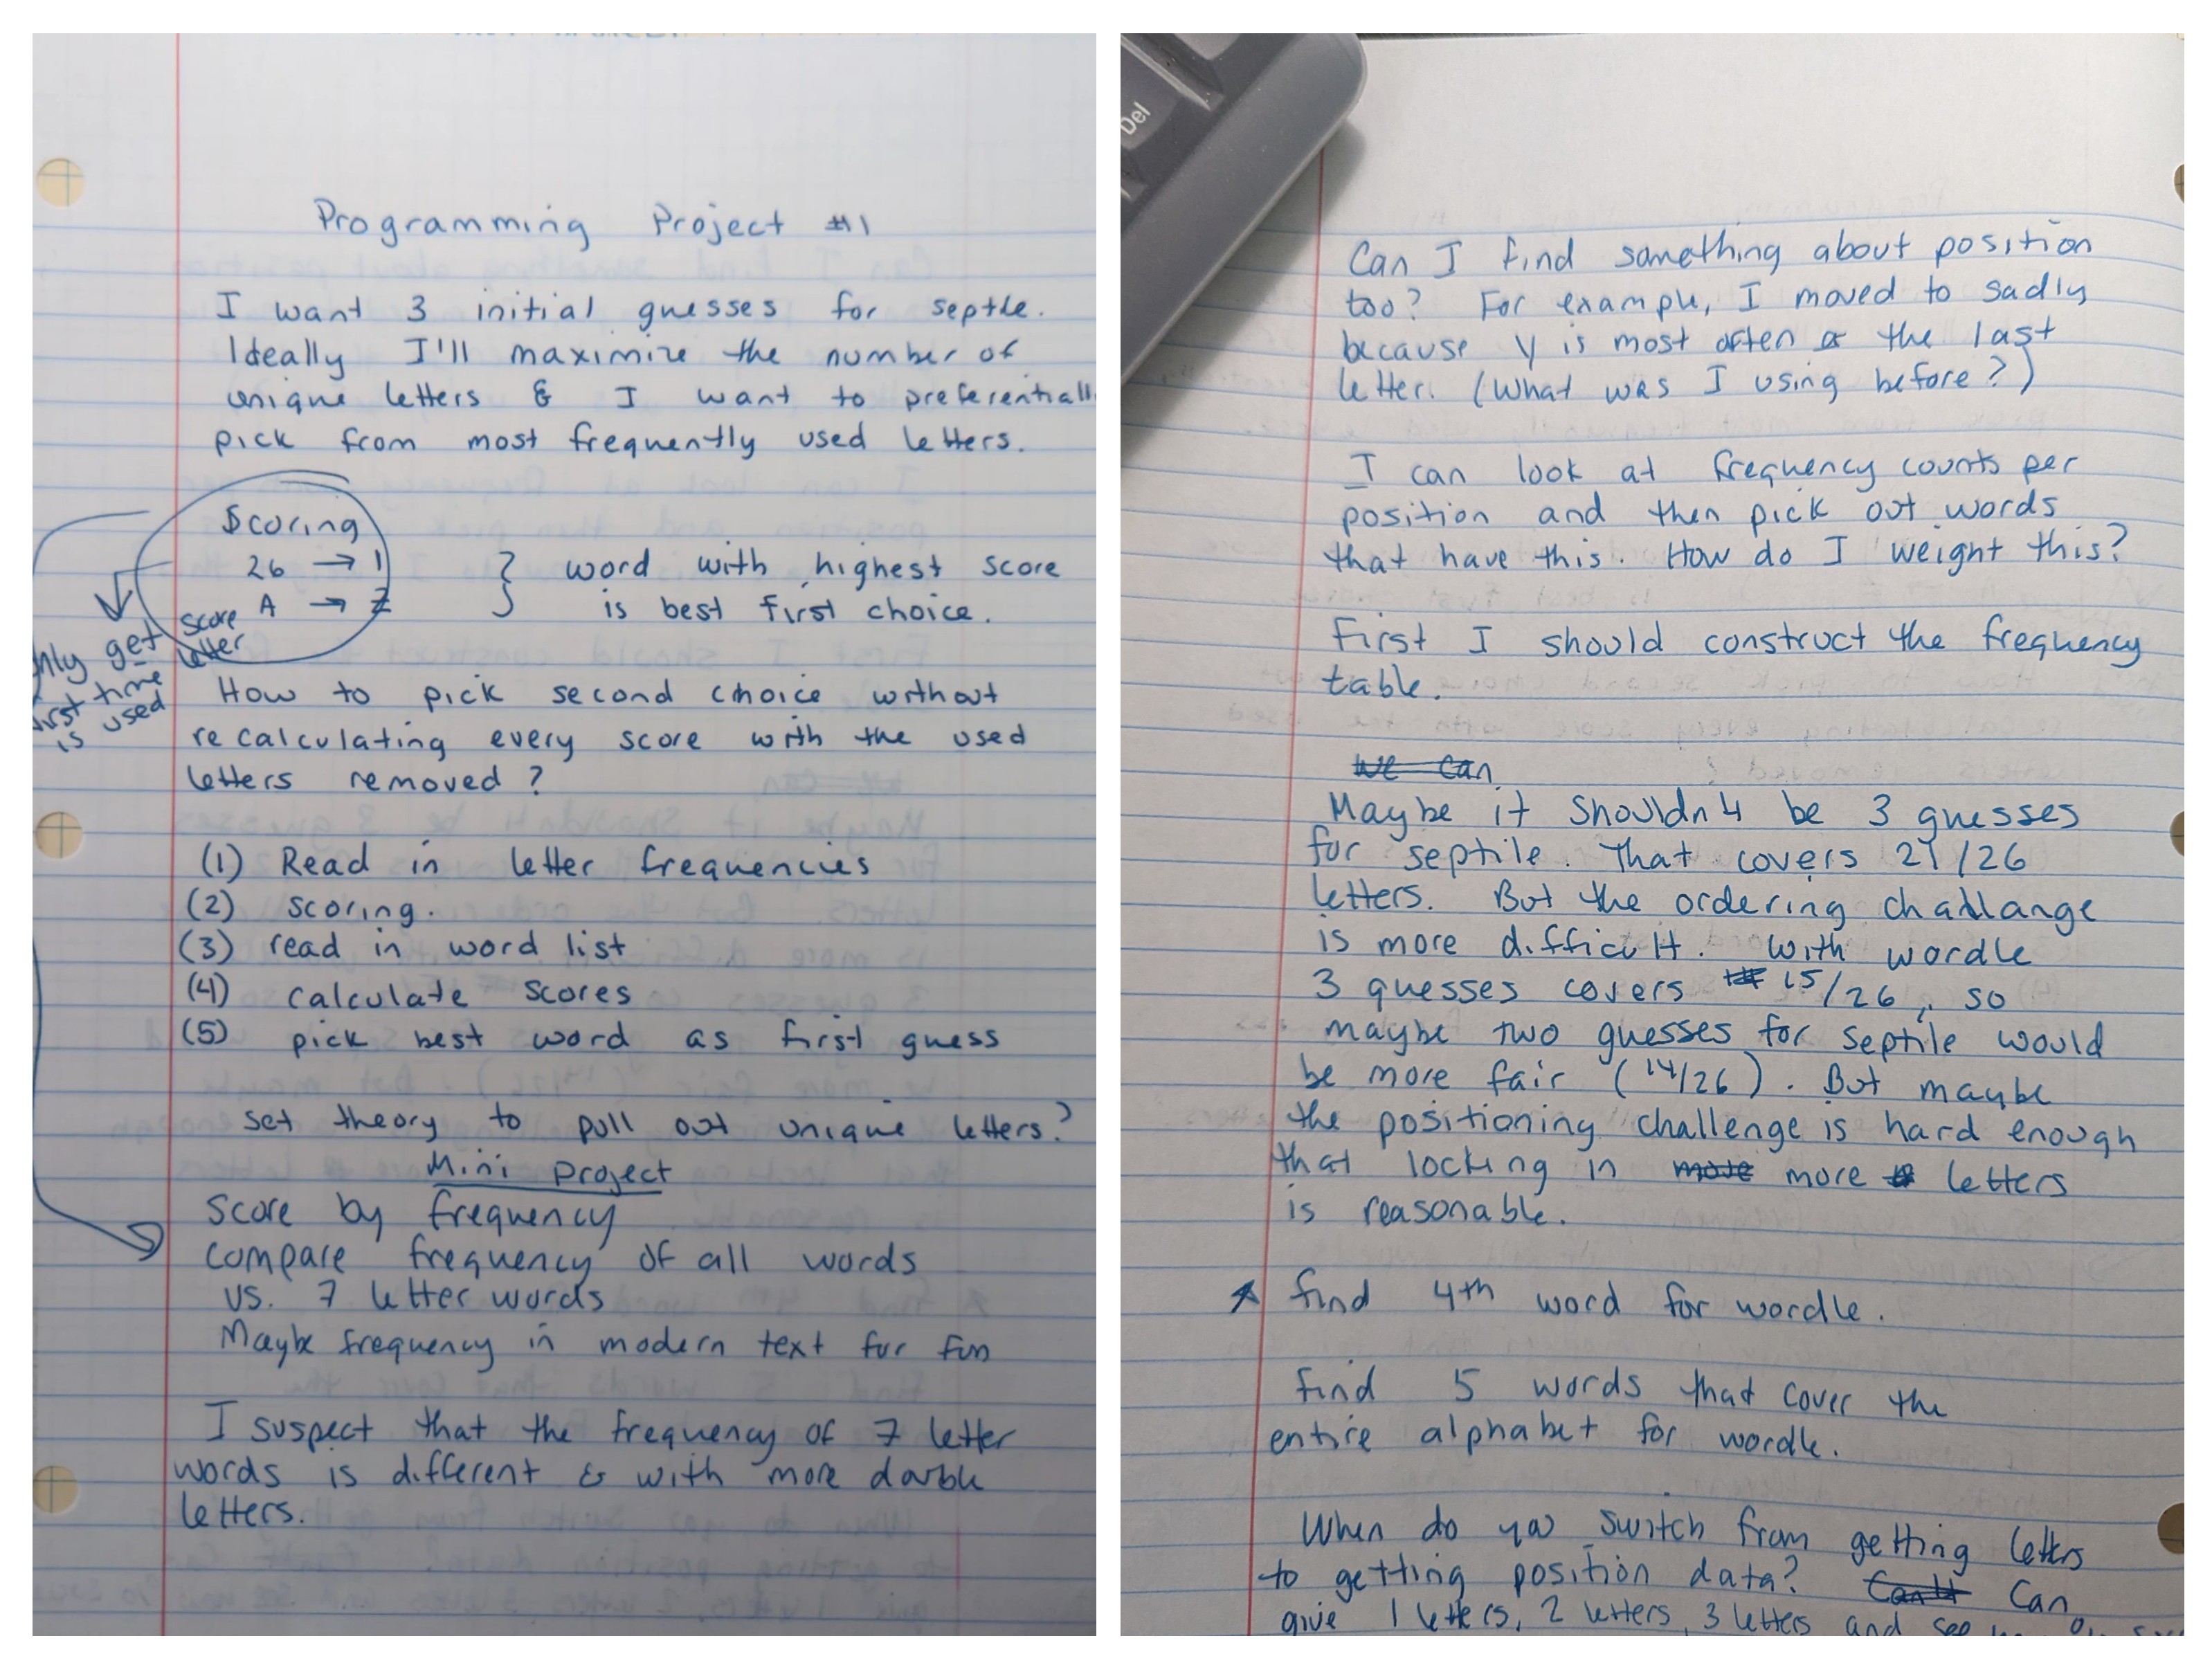 Programming Project #1
I want 3 initial guesses for septle.
Ideally I'll maximize the number of
unique letters & I want to preferentiall
pick from most frequently used letters.
Scoring
26 → 1
A → Z
} word with highest score
is best first choice.
nly get score
irst time letter
is used
How to pick second choice without
recalculating every score with the used
letters removed?
(1) Read in letter frequencies
(2) scoring.
(3) read in word list
(4) calculate scores
(5) pick best word as first guess
set theory to pull out unique letters?
Mini project
Score by frequency
compare frequency of all words
vs. 7 letter words
Maybe frequency in modern text for fun
I suspect that the frequency of 7 letter
words is different & with more double
letters.
Del
Can I find something about position
too? For example, I moved to sadly
because y is most often the last
letter. (What was I using before?)
I can look at frequency counts per
position and then pick out words
that have this. How do I weight this?
First I should construct the frequency
table.
We can
Maybe it shouldn4 be 3 guesses
for septile. That covers 21/26
letters. But the ordering challange
is more difficult. With wordle
3 guesses covers 15/26, so
maybe two guesses for septile would
be more fair (14/26). But maybe
the positioning challenge is hard enough
that locking in more more letters
is reasonable.
find 4th word for wordle.
find 5 words that cover the
entire alphabet for wordle.
When do you switch from getting letters
to getting position data? Can
give 1 letters, 2 letters, 3 letters and see